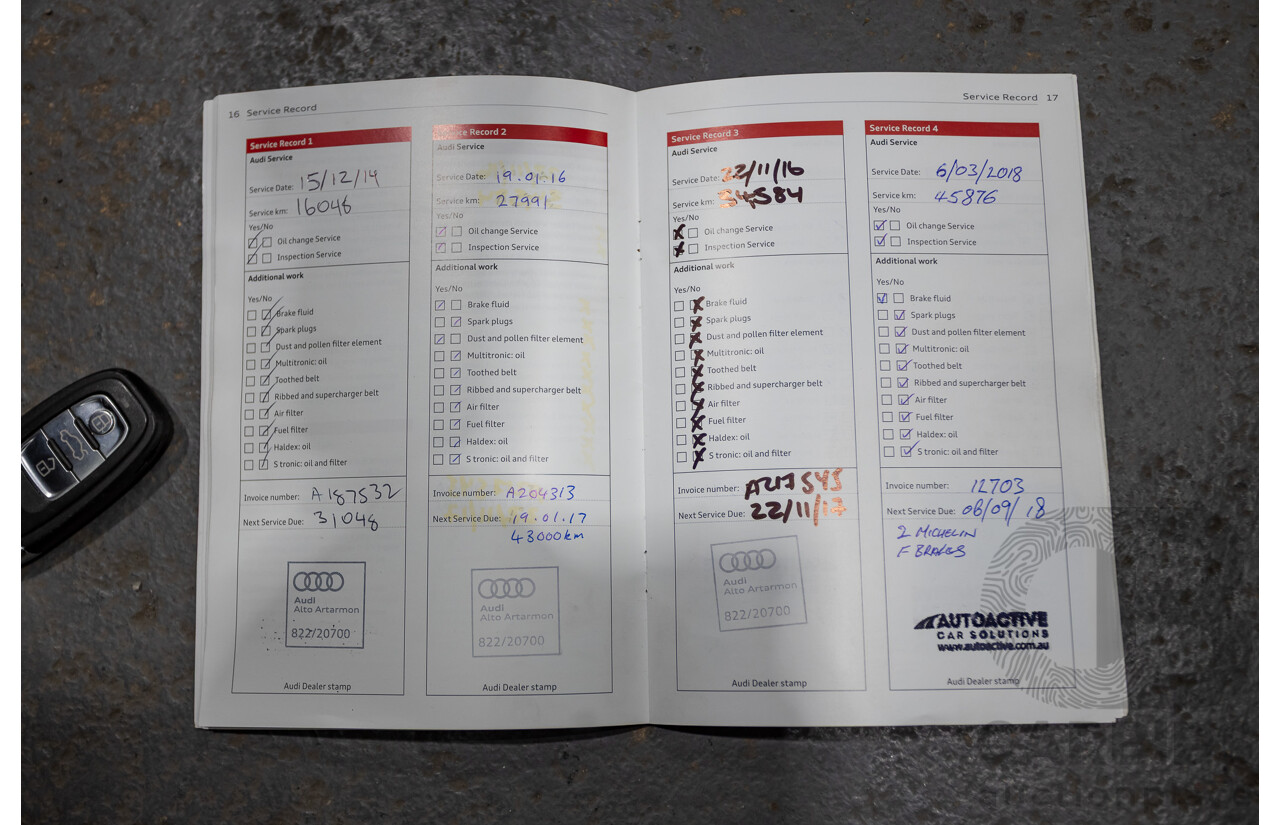 16 Service Record
Service Record 1
Audi Service
Service Date: 15/12/14
Service km: 16046
Yes/No
Oil change Service
Inspection Service
Additional work
Yes/No
Brake fluid
Spark plugs
Dust and pollen filter element
Multitronic: oil
Toothed belt
Ribbed and supercharger belt
Air filter
Fuel filter
Haldex: oil
S tronic: oil and filter
Invoice number: A187532
Next Service Due: 31046
Audi
Alto Artarmon
822/20700
Audi Dealer stamp
Service Record 2
Audi Service
Service Date: 19.01.16
Service km: 27991
Yes/No
Oil change Service
Inspection Service
Additional work
Yes/No
Brake fluid
Spark plugs
Dust and pollen filter element
Multitronic: oil
Toothed belt
Ribbed and supercharger belt
Air filter
Fuel filter
Haldex: oil
S tronic: oil and filter
Invoice number: A204313
Next Service Due: 19.01.17
43000km
Audi
Alto Artarmon
822/20700
Audi Dealer stamp
Service Record 17
Service Record 3
Audi Service
Service Date: 22/11/16
Service km: 34584
Yes/No
Oil change Service
Inspection Service
Additional work
Yes/No
Brake fluid
Spark plugs
Dust and pollen filter element
Multitronic: oil
Toothed belt
Ribbed and supercharger belt
Air filter
Fuel filter
Haldex: oil
S tronic: oil and filter
Invoice number: A217545
Next Service Due: 22/11/17
Audi
Alto Artarmon
822/20700
Audi Dealer stamp
Service Record 4
Audi Service
Service Date: 6/03/2018
Service km: 45876
Yes/No
Oil change Service
Inspection Service
Additional work
Yes/No
Brake fluid
Spark plugs
Dust and pollen filter element
Multitronic: oil
Toothed belt
Ribbed and supercharger belt
Air filter
Fuel filter
Haldex: oil
S tronic: oil and filter
Invoice number: 12703
Next Service Due: 06/09/18
2 MICHELIN
F BRAKES
AUTOACTIVE
CAR SOLUTIONS
www.autoactive.com.au
Audi Dealer stamp